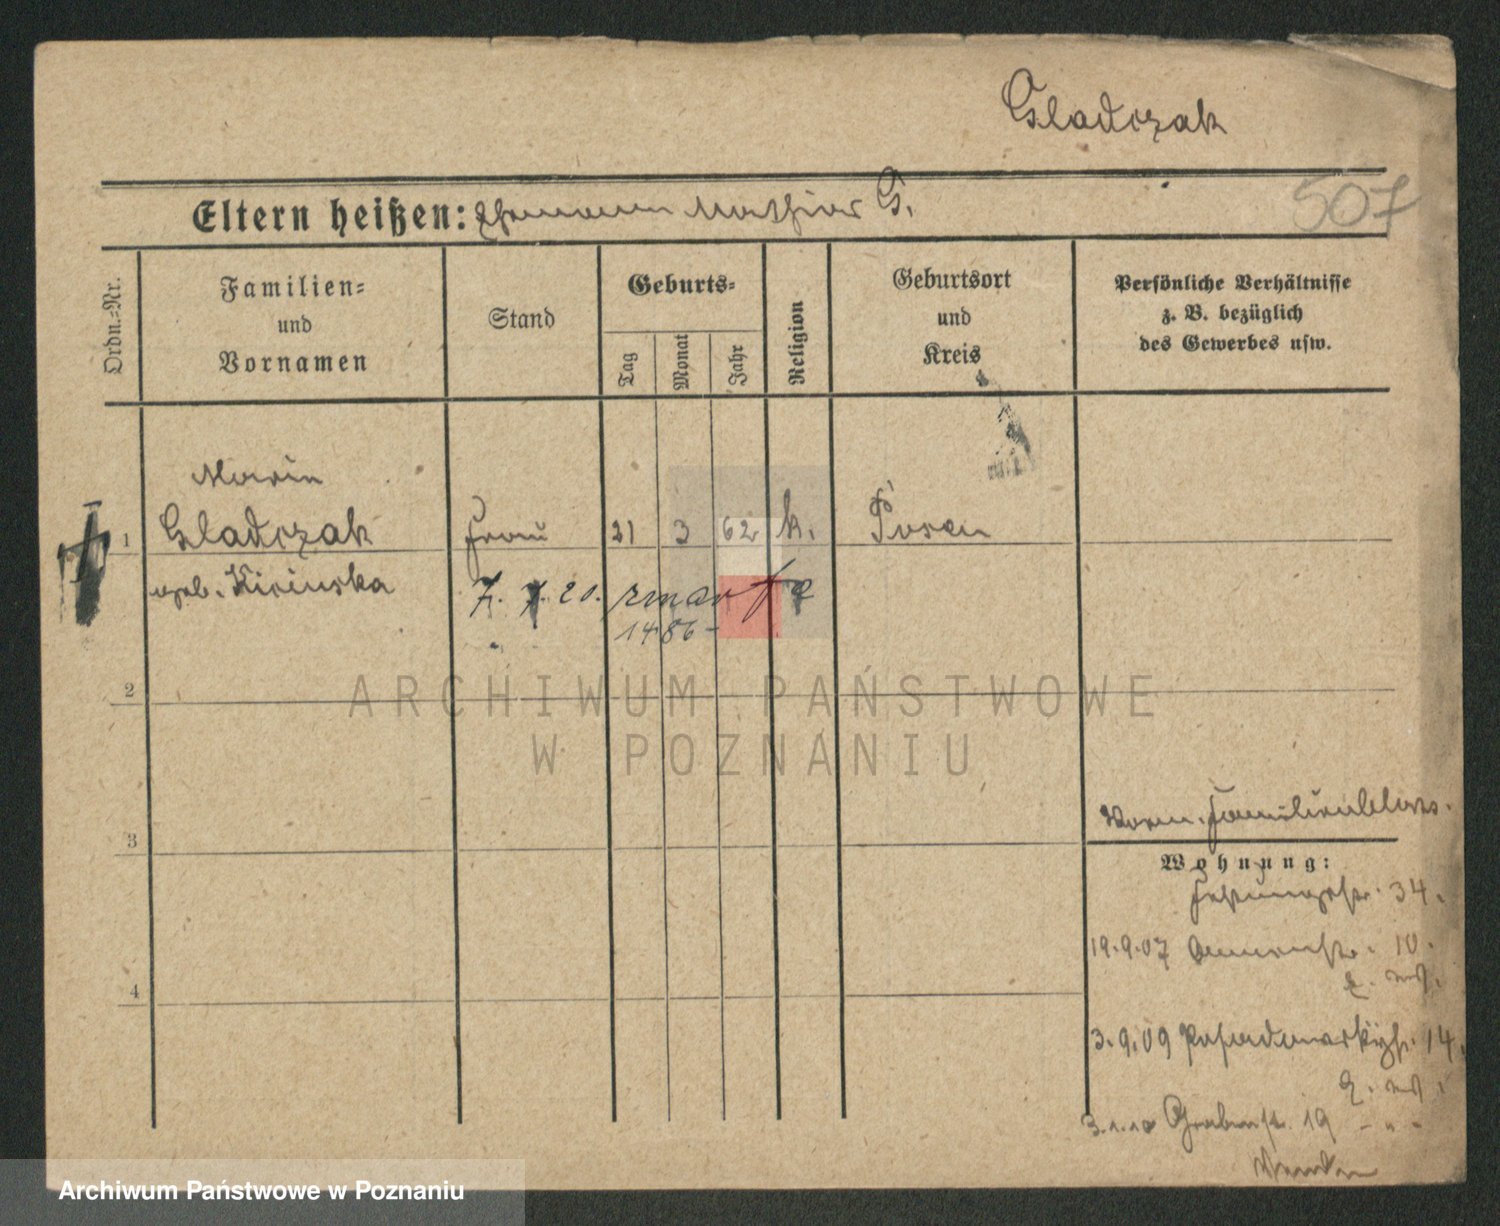 Gladczak
507
Eltern heißen: Ehemann Mathias G.
Ordn.-Nr.
Familien-
und
Vornamen
Stand
Geburts-
Tag
Monat
Jahr
Religion
Geburtsort
und
Kreis
Persönliche Verhältnisse
z. B. bezüglich
des Gewerbes usw.
Marie
1 Gladczak Frau 21 3 62 k. Posen
geb. Kicinska
7. 7. 20.
1486
2
ARCHIWUM PAŃSTWOWE
W POZNANIU
3
Vorm. Familienblatt.
Wohnung:
Festungsstr. 34.
19.9.07 10.
3.9.09 14.
3.1.10 Grabenstr. 19 - " -
4
Archiwum Państwowe w Poznaniu